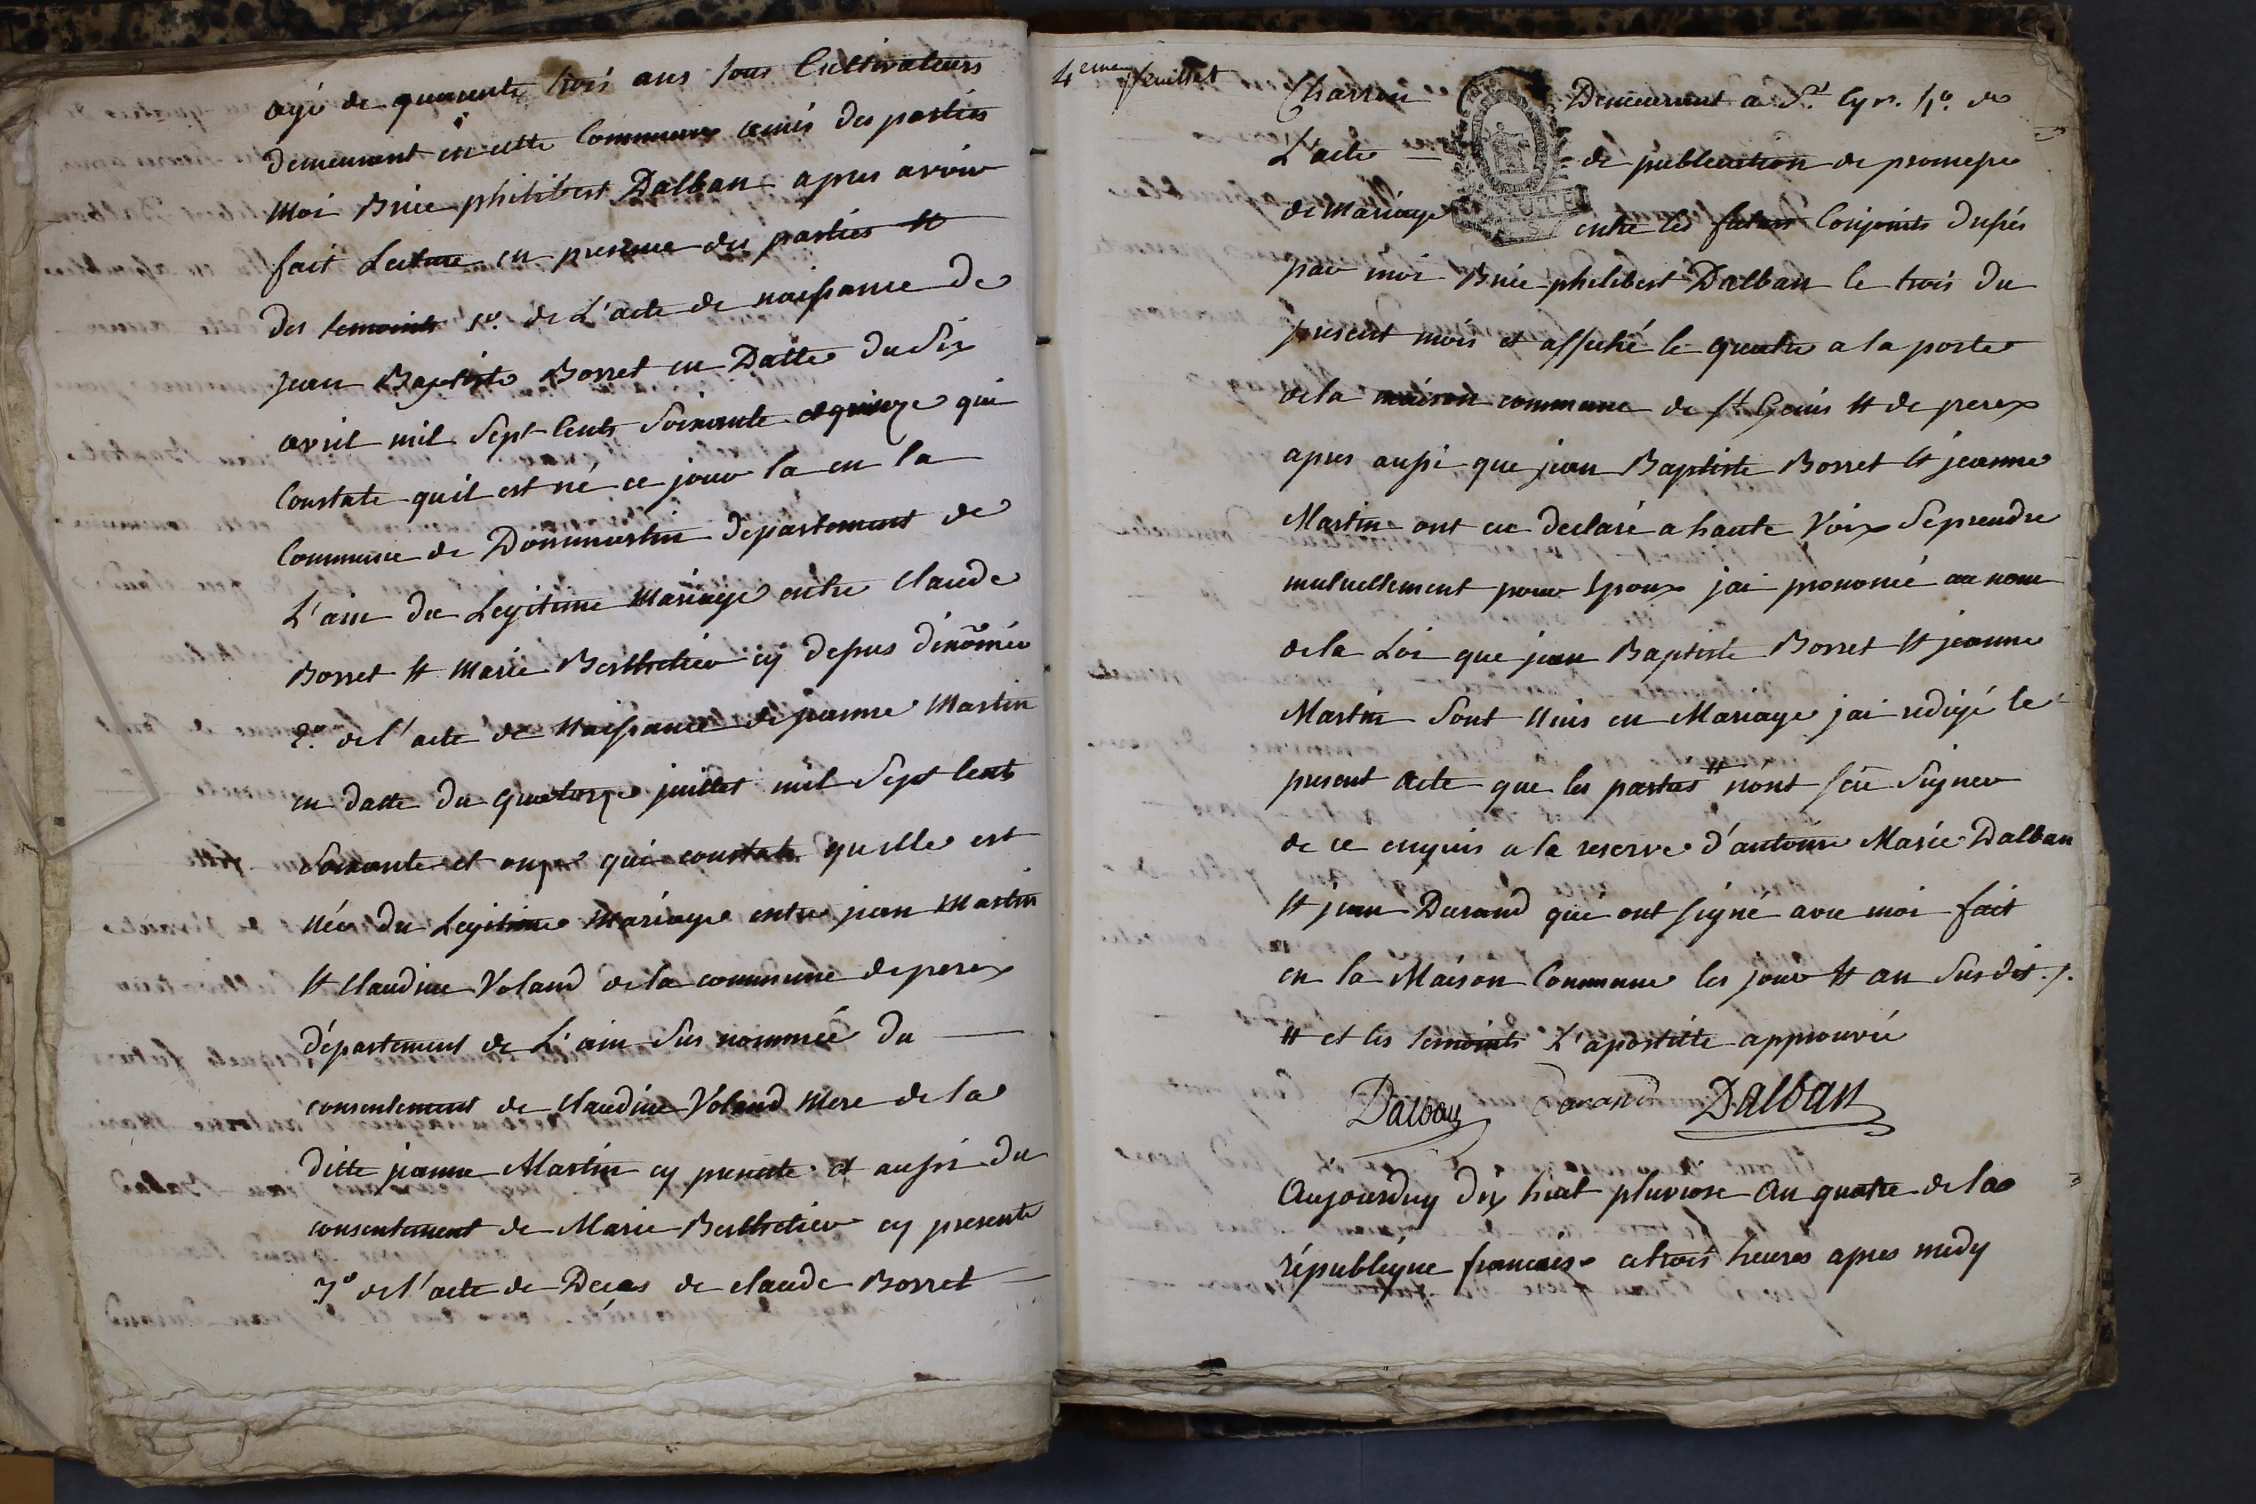 agé de quarente trois ans tous Cultivateurs
demeurent en cette Commune amis des parties
moi Brice philibert Dalban apres avoir
fait Lecture en presence des parties et
des temoints 1º. de L'acte de naissance de
jean Baptiste Borret en Datte du Six
avril mil Sept Cents Soixante et quinze qui
Constate quil est né ce jour la en la
Commune de Dommartin departement de
L'ain du Legitime Mariage entre Claude
Borret et Marie Berthelier cy desus dénomée
2º. de l'acte de Naissance de jeanne Martin
en datte du quatorze juillet mil Sept Cents
Soixante et onze qui constate quelle est
Née du Legitime Mariage entre jean Martin
et Claudine Voland de la commune de perex
département de L'ain Sus nommée du
consentement de Claudine Voland Mere de la
ditte jeanne Martin cy presente et aussi du
consentement de Marie Berthelier cy presente
3º de l'acte de Deces de claude Borret
4eme feuillet
Charron Demeurant a St. Cyr. 4º. de
L'acte de publication de promesse
de Mariage entre les futurs Conjoints dressés
par moi Brice philibert Dalban le trois du
present mois et affiché le quatre a la porte
de la maison commune de St Genis et de perex
apres aussi que jean Baptiste Borret et jeanne
Martin ont eu declaré a haute Voix Seprendre
mutuellement pour Epoux jai prononcé au nom
de la Loi que jean Baptiste Borret et jeanne
Martin Sont Unis en Mariage jai redigé le
present Acte que les parties # n'ont sçu Signer
de ce enquis a la reserve d'antoine Marie Dalban
et jean Durand qui ont signé avec moi fait
en la Maison Commune les jour et an Susdit ./.
# et les temoints L'apostille approuvée
Dalban Durand Dalban
Aujourduy dix huit pluviose An quatre de la
république francaise a trois heures apres midy